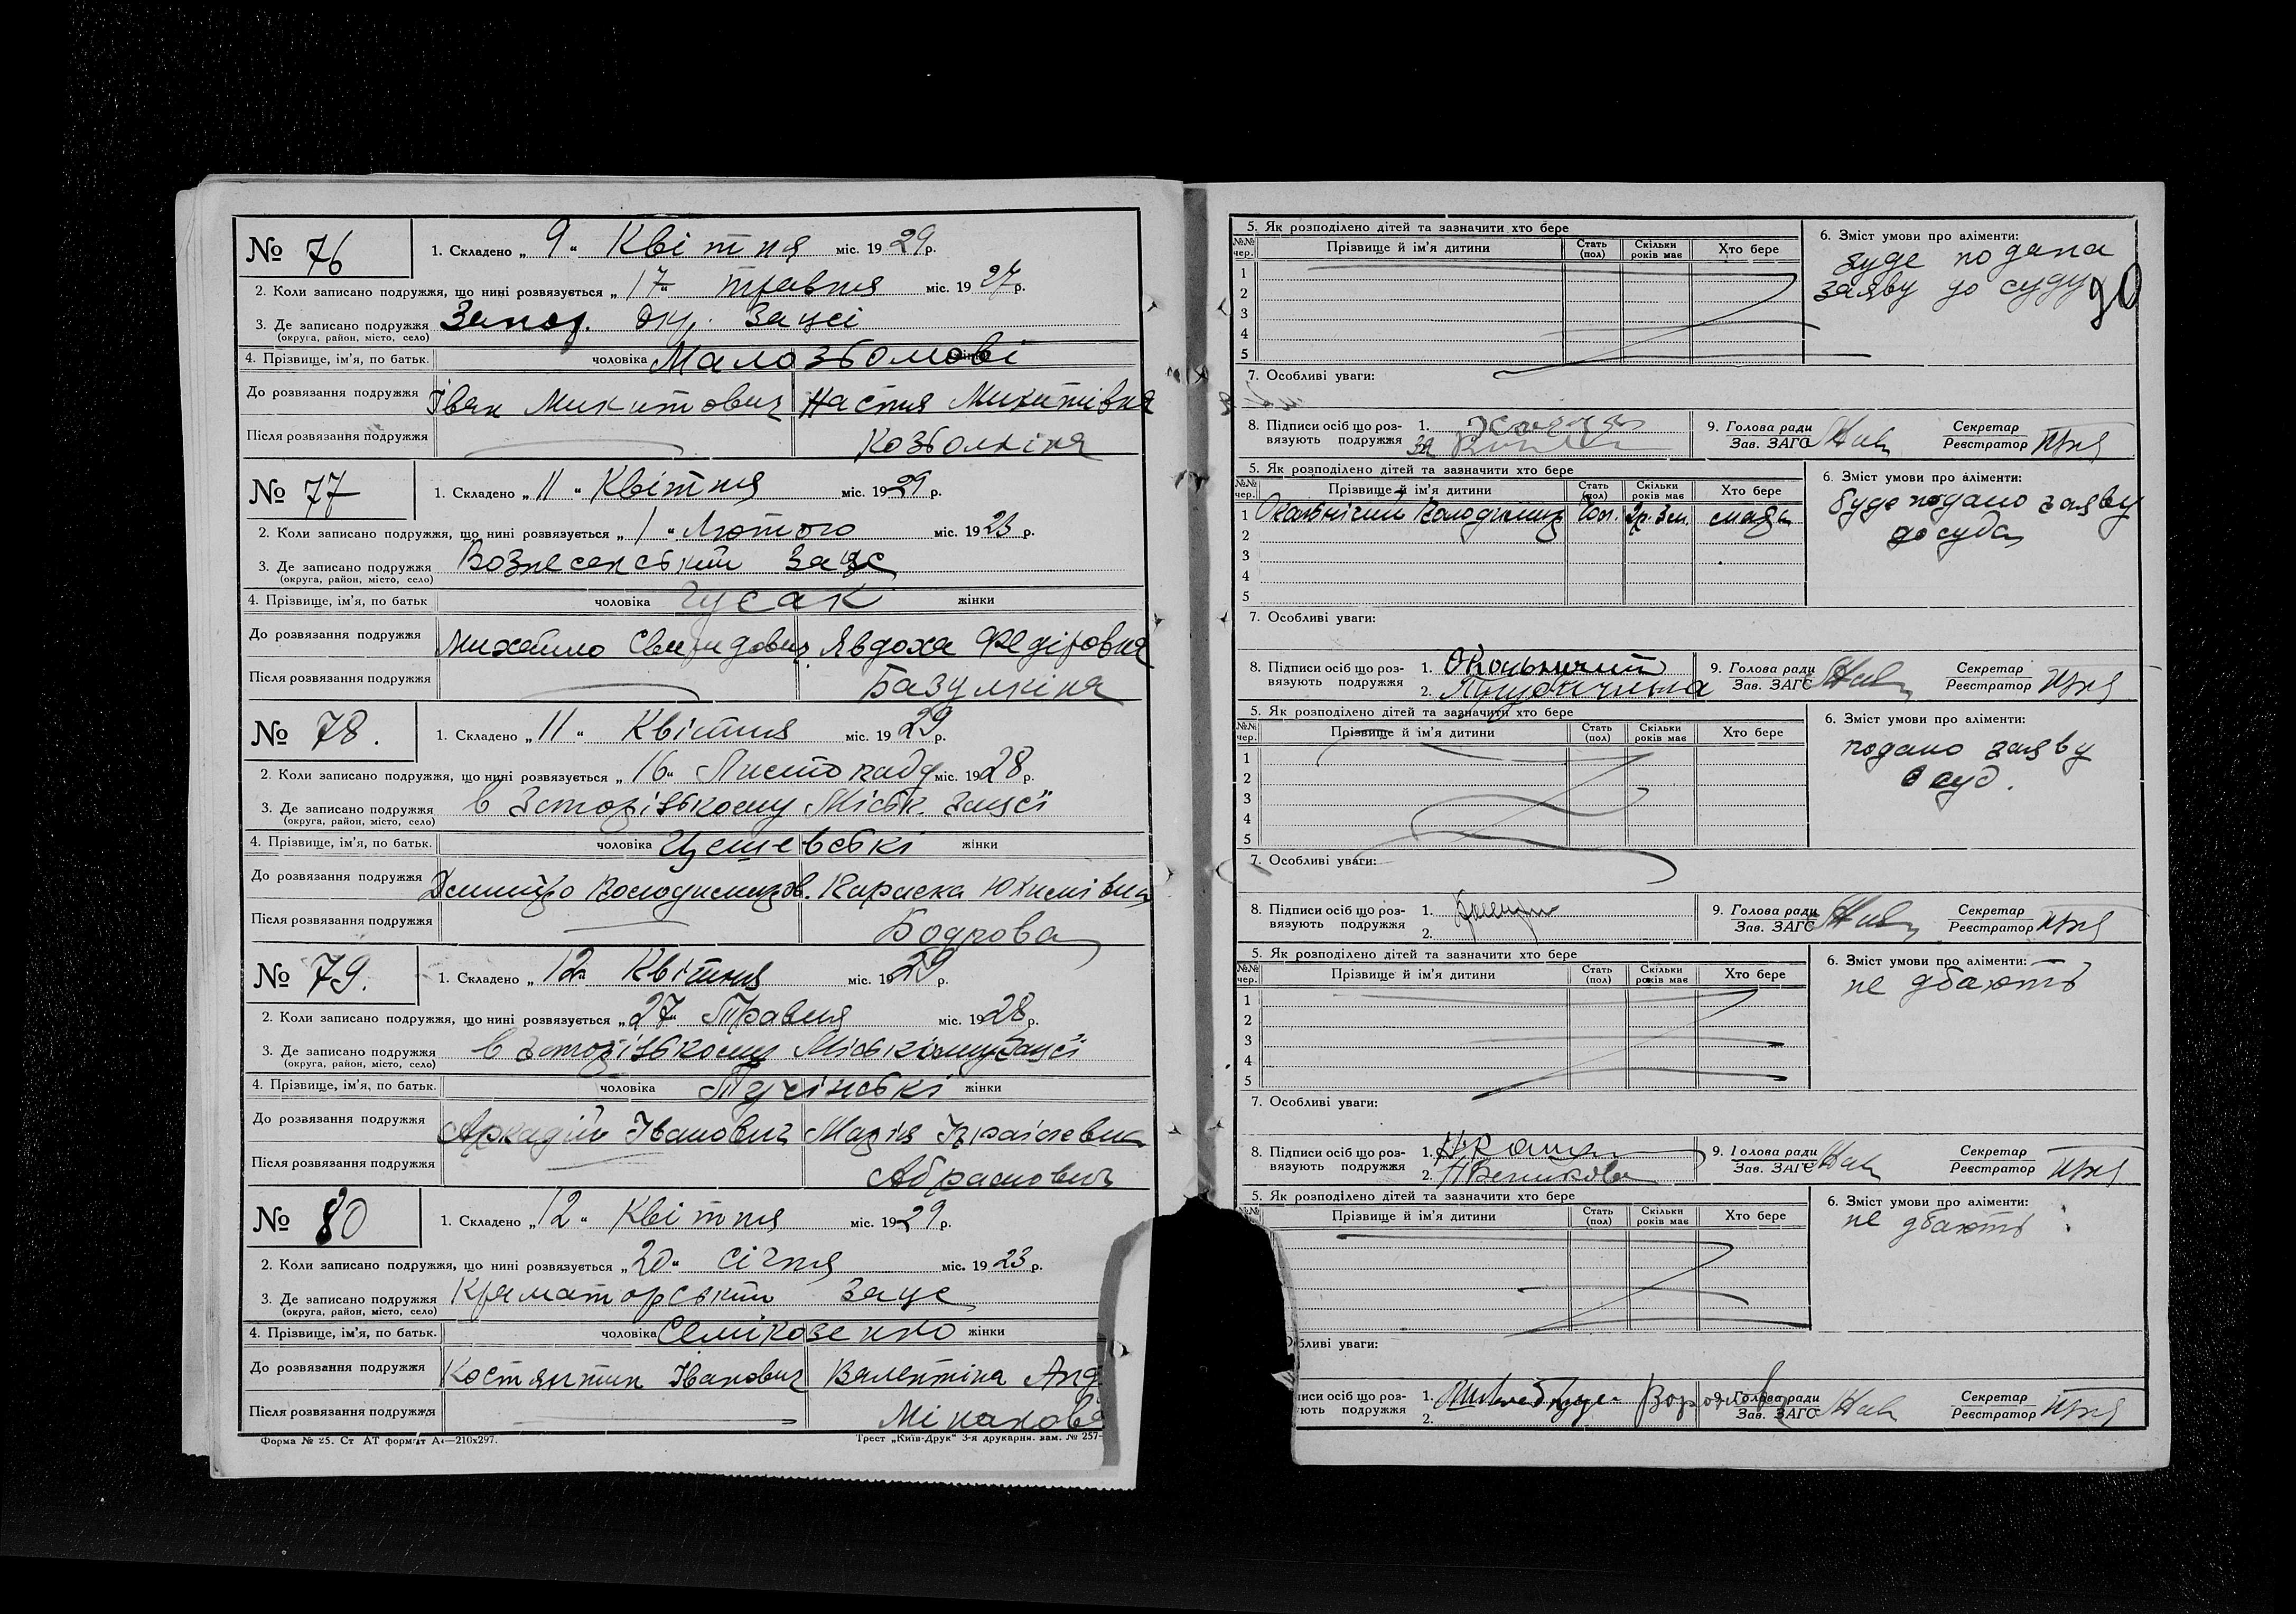 № 76
1. Складено „ 9 “ Квітня міс. 1929 р.
2. Коли записано подружжя, що нині розвязується „ 17 “ травня міс. 1927 р.
3. Де записано подружжя Запор. Окр. Загсі
(округа, район, місто, село)
4. Прізвище, ім’я, по батьк. чоловіка
До розвязання подружжя Іван Микитович Настя Микитівна
Після розвязання подружжя
№ 77
1. Складено „ 11 “ Квітня міс. 1929 р.
2. Коли записано подружжя, що нині розвязується „ 1 “ Лютого міс. 1923 р.
3. Де записано подружжя Вознесенський Загс
(округа, район, місто, село)
4. Прізвище, ім’я, по батьк чоловіка Гусак жінки
До розвязання подружжя Михайло Свиридович Явдоха Федіровна
Після розвязання подружжя Базулкіна
№ 78.
1. Складено „ 11 “ Квітня міс. 1929 р.
2. Коли записано подружжя, що нині розвязується „ 16 “ Листопаду міс. 1928 р.
3. Де записано подружжя в Запорізькому Міськ. Загсі
(округа, район, місто, село)
4. Прізвище, ім’я, по батьк. чоловіка жінки
До розвязання подружжя Дмитро Володимиров. Параска Юхимівна
Після розвязання подружжя Бодрова
№ 79.
1. Складено „ 12 “ Квітня міс. 1929 р.
2. Коли записано подружжя, що нині розвязується „ 27 “ Травня міс. 1928 р.
3. Де записано подружжя в Запорізькому Міському Загсі
(округа, район, місто, село)
4. Прізвище, ім’я, по батьк. чоловіка Тучінські жінки
До розвязання подружжя Аркадій Іванович Марія
Після розвязання подружжя Абрамович
№ 80
1. Складено „ 12 “ Квітня міс. 1929 р.
2. Коли записано подружжя, що нині розвязується „ 20 “ Січня міс. 1923 р.
3. Де записано подружжя Краматорський Загс
(округа, район, місто, село)
4. Прізвище, ім’я, по батьк. чоловіка Семікозенко жінки
До розвязання подружжя Костянтин Іванович Валентіна Анд
Після розвязання подружжя Мінакова
Форма № 25. Ст АТ формат А4—210х297. Трест „Київ-Друк“ 3-я друкарня. зам. № 257-
5. Як розподілено дітей та зазначити хто бере
6. Зміст умови про аліменти:
№№ чер. Прізвище й ім’я дитини Стать (пол) Скільки років має Хто бере
буде подана
заяву до суду
80
1
2
3
4
5
7. Особливі уваги:
8. Підписи осіб що роз- 1. 9. Голова ради Секретар
вязують подружжя за Зав. ЗАГС Реєстратор
5. Як розподілено дітей та зазначити хто бере
6. Зміст умови про аліменти:
№№ чер. Прізвище й ім’я дитини Стать (пол) Скільки років має Хто бере
буде подано заяву
до суда
1 Володимир Чол. 2р. 3м.
2
3
4
5
7. Особливі уваги:
8. Підписи осіб що роз- 1. 9. Голова ради Секретар
вязують подружжя 2. Зав. ЗАГС Реєстратор
5. Як розподілено дітей та зазначити хто бере
6. Зміст умови про аліменти:
№№ чер. Прізвище й ім’я дитини Стать (пол) Скільки років має Хто бере
подано заяву
в суд.
1
2
3
4
5
7. Особливі уваги:
8. Підписи осіб що роз- 1. 9. Голова ради Секретар
вязують подружжя 2. Зав. ЗАГС Реєстратор
5. Як розподілено дітей та зазначити хто бере
6. Зміст умови про аліменти:
№№ чер. Прізвище й ім’я дитини Стать (пол) Скільки років має Хто бере
не дбають
1
2
3
4
5
7. Особливі уваги:
8. Підписи осіб що роз- 1. 9. Голова ради Секретар
вязують подружжя 2. Зав. ЗАГС Реєстратор
5. Як розподілено дітей та зазначити хто бере
6. Зміст умови про аліменти:
№№ Прізвище й ім’я дитини Стать (пол) Скільки років має Хто бере
не дбають
бливі уваги:
писи осіб що роз- 1. 9. Голова ради Секретар
ють подружжя 2. Зав. ЗАГС Реєстратор